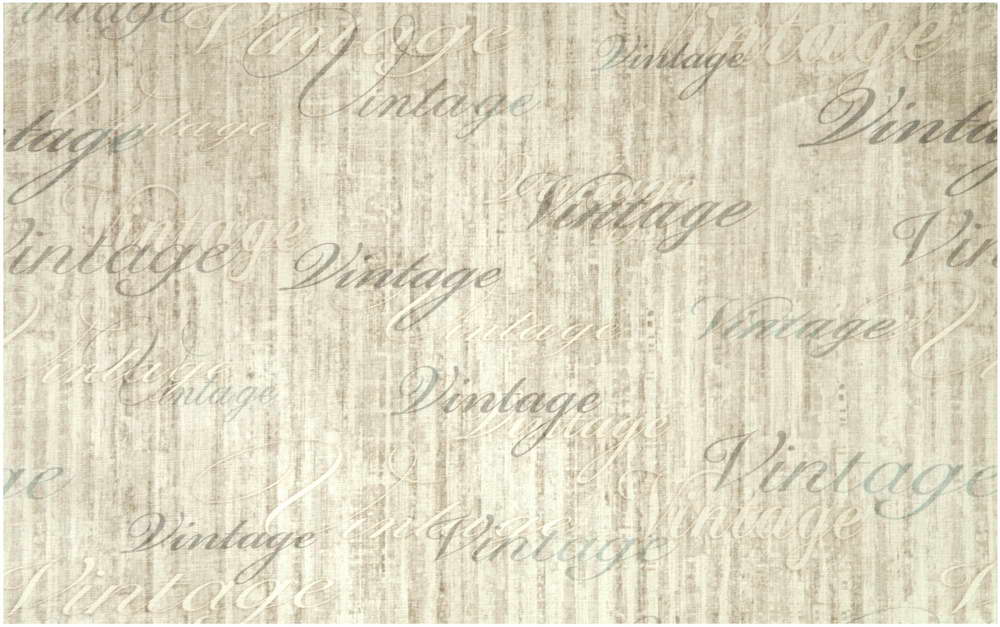 intage
Vintage
Vintage
Vintage
Vintage
Vintage
tage
intage
Vinta
Vintage
Vintage
Vintage
Vintage
Vin
Vintage
intage
Vintage
Vintage
intage
intage
Vintage
Vintage
Vintage
ge
Vintage
Vintage
Vintage
Vintage
Vintage
Vi